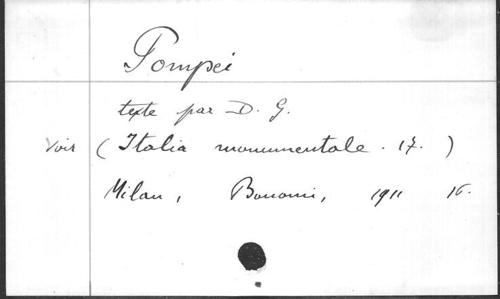 Pompei
texte par D. G.
Voir (Italia monumentale. 17.)
Milan, Bonomi, 1911 16.